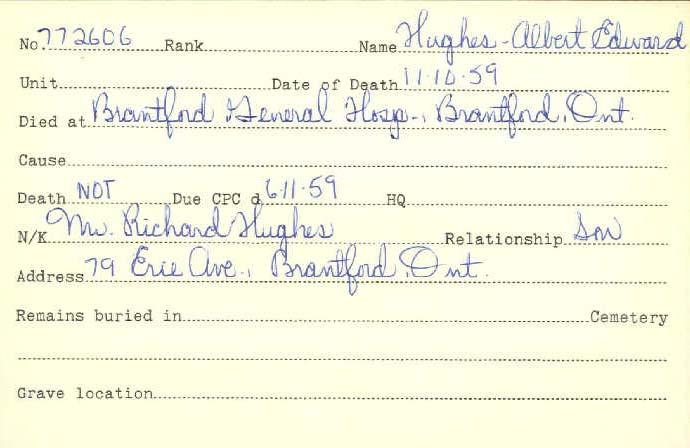 No. 772606 Rank Name Hughes - Albert Edward
Unit Date of Death 11·10·59
Died at Brantford General Hosp., Brantford, Ont.
Cause
Death NOT Due CPC d 6·11·59 HQ
N/K Mr. Richard Hughes Relationship Son
Address 79 Erie Ave., Brantford, Ont.
Remains buried in Cemetery
Grave location